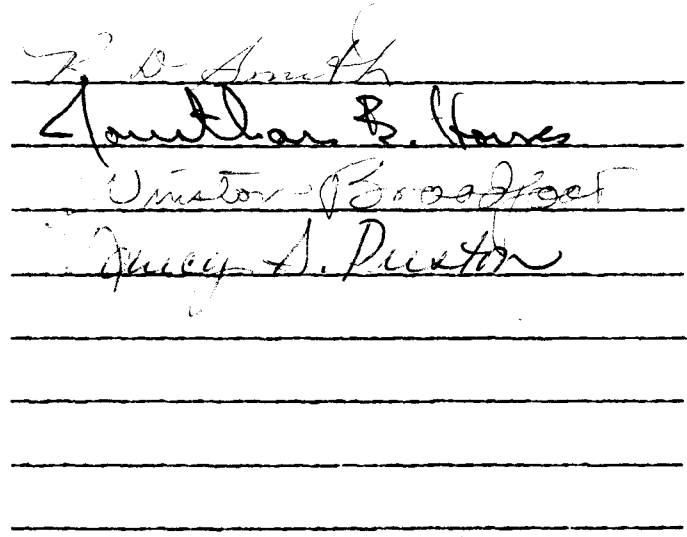 R. D. Smith
Jonathan B. Howes
Winston Broadfoot
Nancy S. Preston